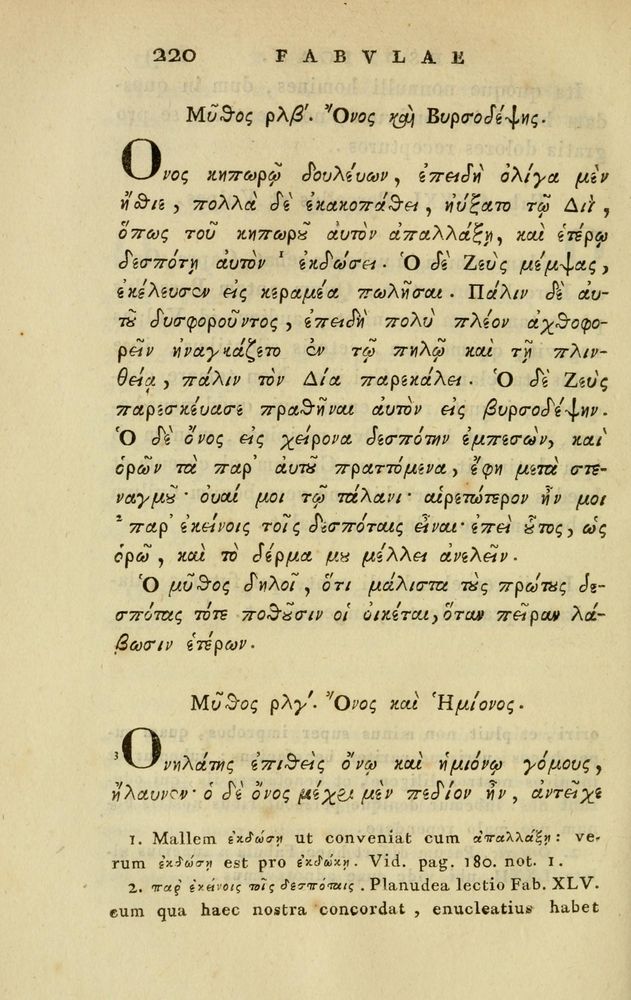 220 FABVLAE
Μῦθος ρλβʹ. Ὄνος καὶ Βυρσοδέψης.
Ονος κηπωρῷ δουλεύων, ἐπειδὴ ὀλίγα μὲν
ἤθιε, πολλὰ δὲ ἐκακοπάθει, ηὐξατο τῷ Διῒ,
ὅπως τοῦ κηπωροῦ αὐτὸν ἀπαλλάξῃ, καὶ ἑτέρῳ
δεσπότῃ αὐτὸν ¹ ἐκδώσει. Ὁ δὲ Ζεὺς μέμψας,
ἐκέλευσεν εἰς κεραμέα πωλῆσαι. Πάλιν δὲ αὐ-
τοῦ δυσφοροῦντος, ἐπειδὴ πολὺ πλέον ἀχθοφο-
ρεῖν ἠναγκάζετο ἐν τῷ πηλῷ καὶ τῇ πλιν-
θείᾳ, πάλιν τὸν Δία παρεκάλει. Ὁ δὲ Ζεὺς
παρεσκεύασε πραθῆναι αὐτὸν εἰς βυρσοδέψην.
Ὁ δὲ ὄνος εἰς χείρονα δεσπότην ἐμπεσὼν, καὶ
ὁρῶν τὰ παρ' αὐτοῦ πραττόμενα, ἔφη μετὰ στε-
ναγμοῦ· οὐαί μοι τῷ τάλανι· αἱρετώτερον ἦν μοι
² παρ' ἐκείνοις τοῖς δεσπόταις εἶναι· ἐπεὶ οὗτος, ὡς
ὁρῶ, καὶ τὸ δέρμα μου μέλλει ἀνελεῖν.
Ὁ μῦθος δηλοῖ, ὅτι μάλιστα τοὺς πρώτους δε-
σπότας τότε ποθοῦσιν οἱ οἰκέται, ὅταν πεῖραν λά-
βωσιν ἑτέρων.
Μῦθος ρλγʹ. Ὄνος καὶ Ἡμίονος.
³ Ονηλάτης ἐπιθεὶς ὄνῳ καὶ ἡμιόνῳ γόμους,
ἤλαυνεν· ὁ δὲ ὄνος μέχρι μὲν πεδίον ἦν, ἀντεῖχε
1. Mallem ἐκδώσῃ ut conveniat cum ἀπαλλάξῃ: ve-
rum ἐκδώσῃ est pro ἐκδώκῃ. Vid. pag. 180. not. 1.
2. παρ' ἐκείνοις τοῖς δεσπόταις. Planudea lectio Fab. XLV.
cum qua haec nostra concordat, enucleatius habet